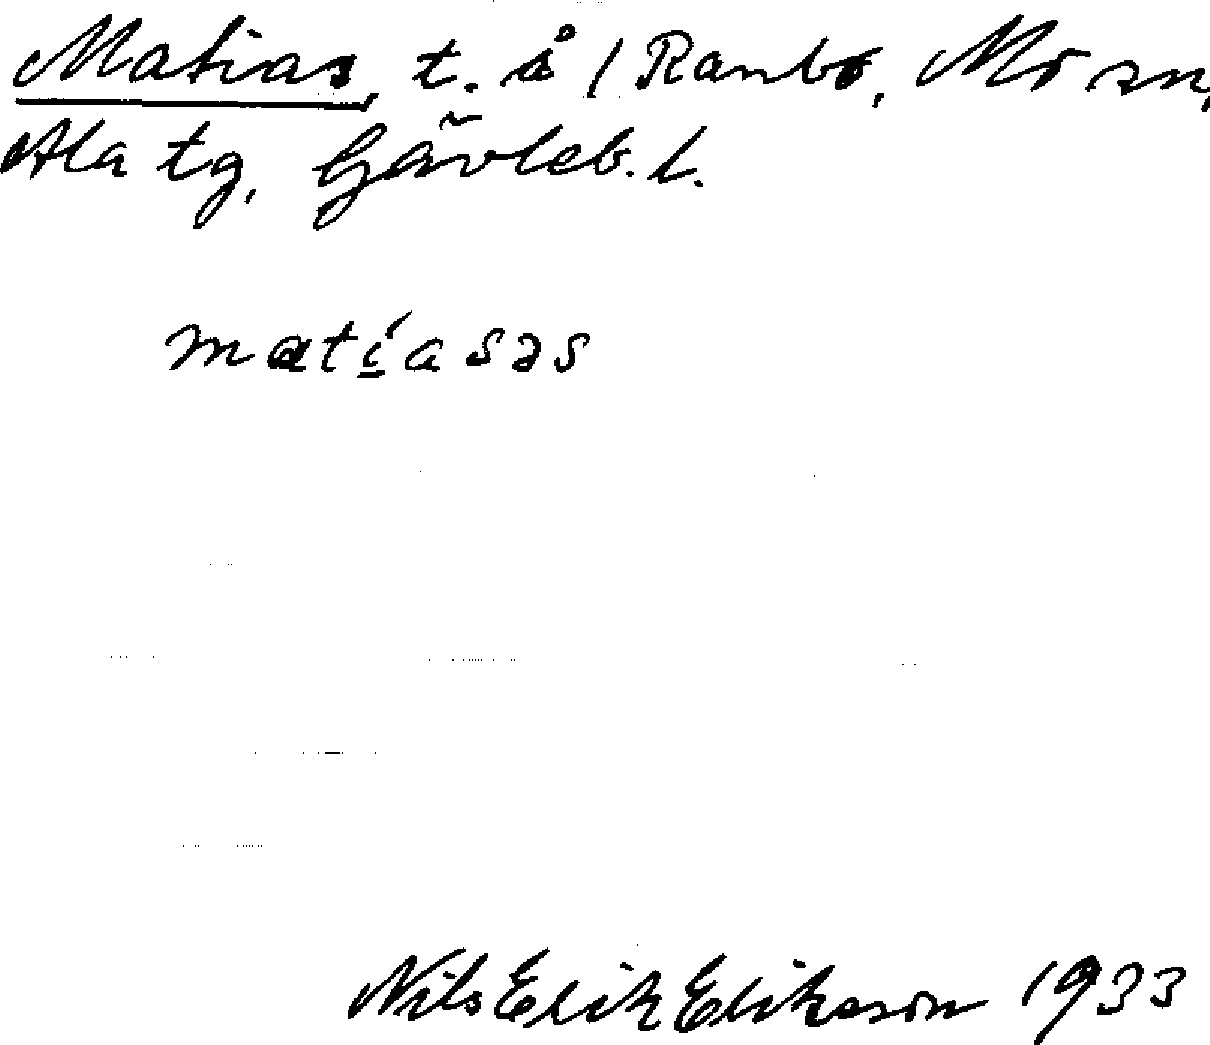 Matias, t. å / Ranbo, Mo sn,
Ala tg, Gävleb. l.
matíasəs
Nils Erik Eriksson 1933